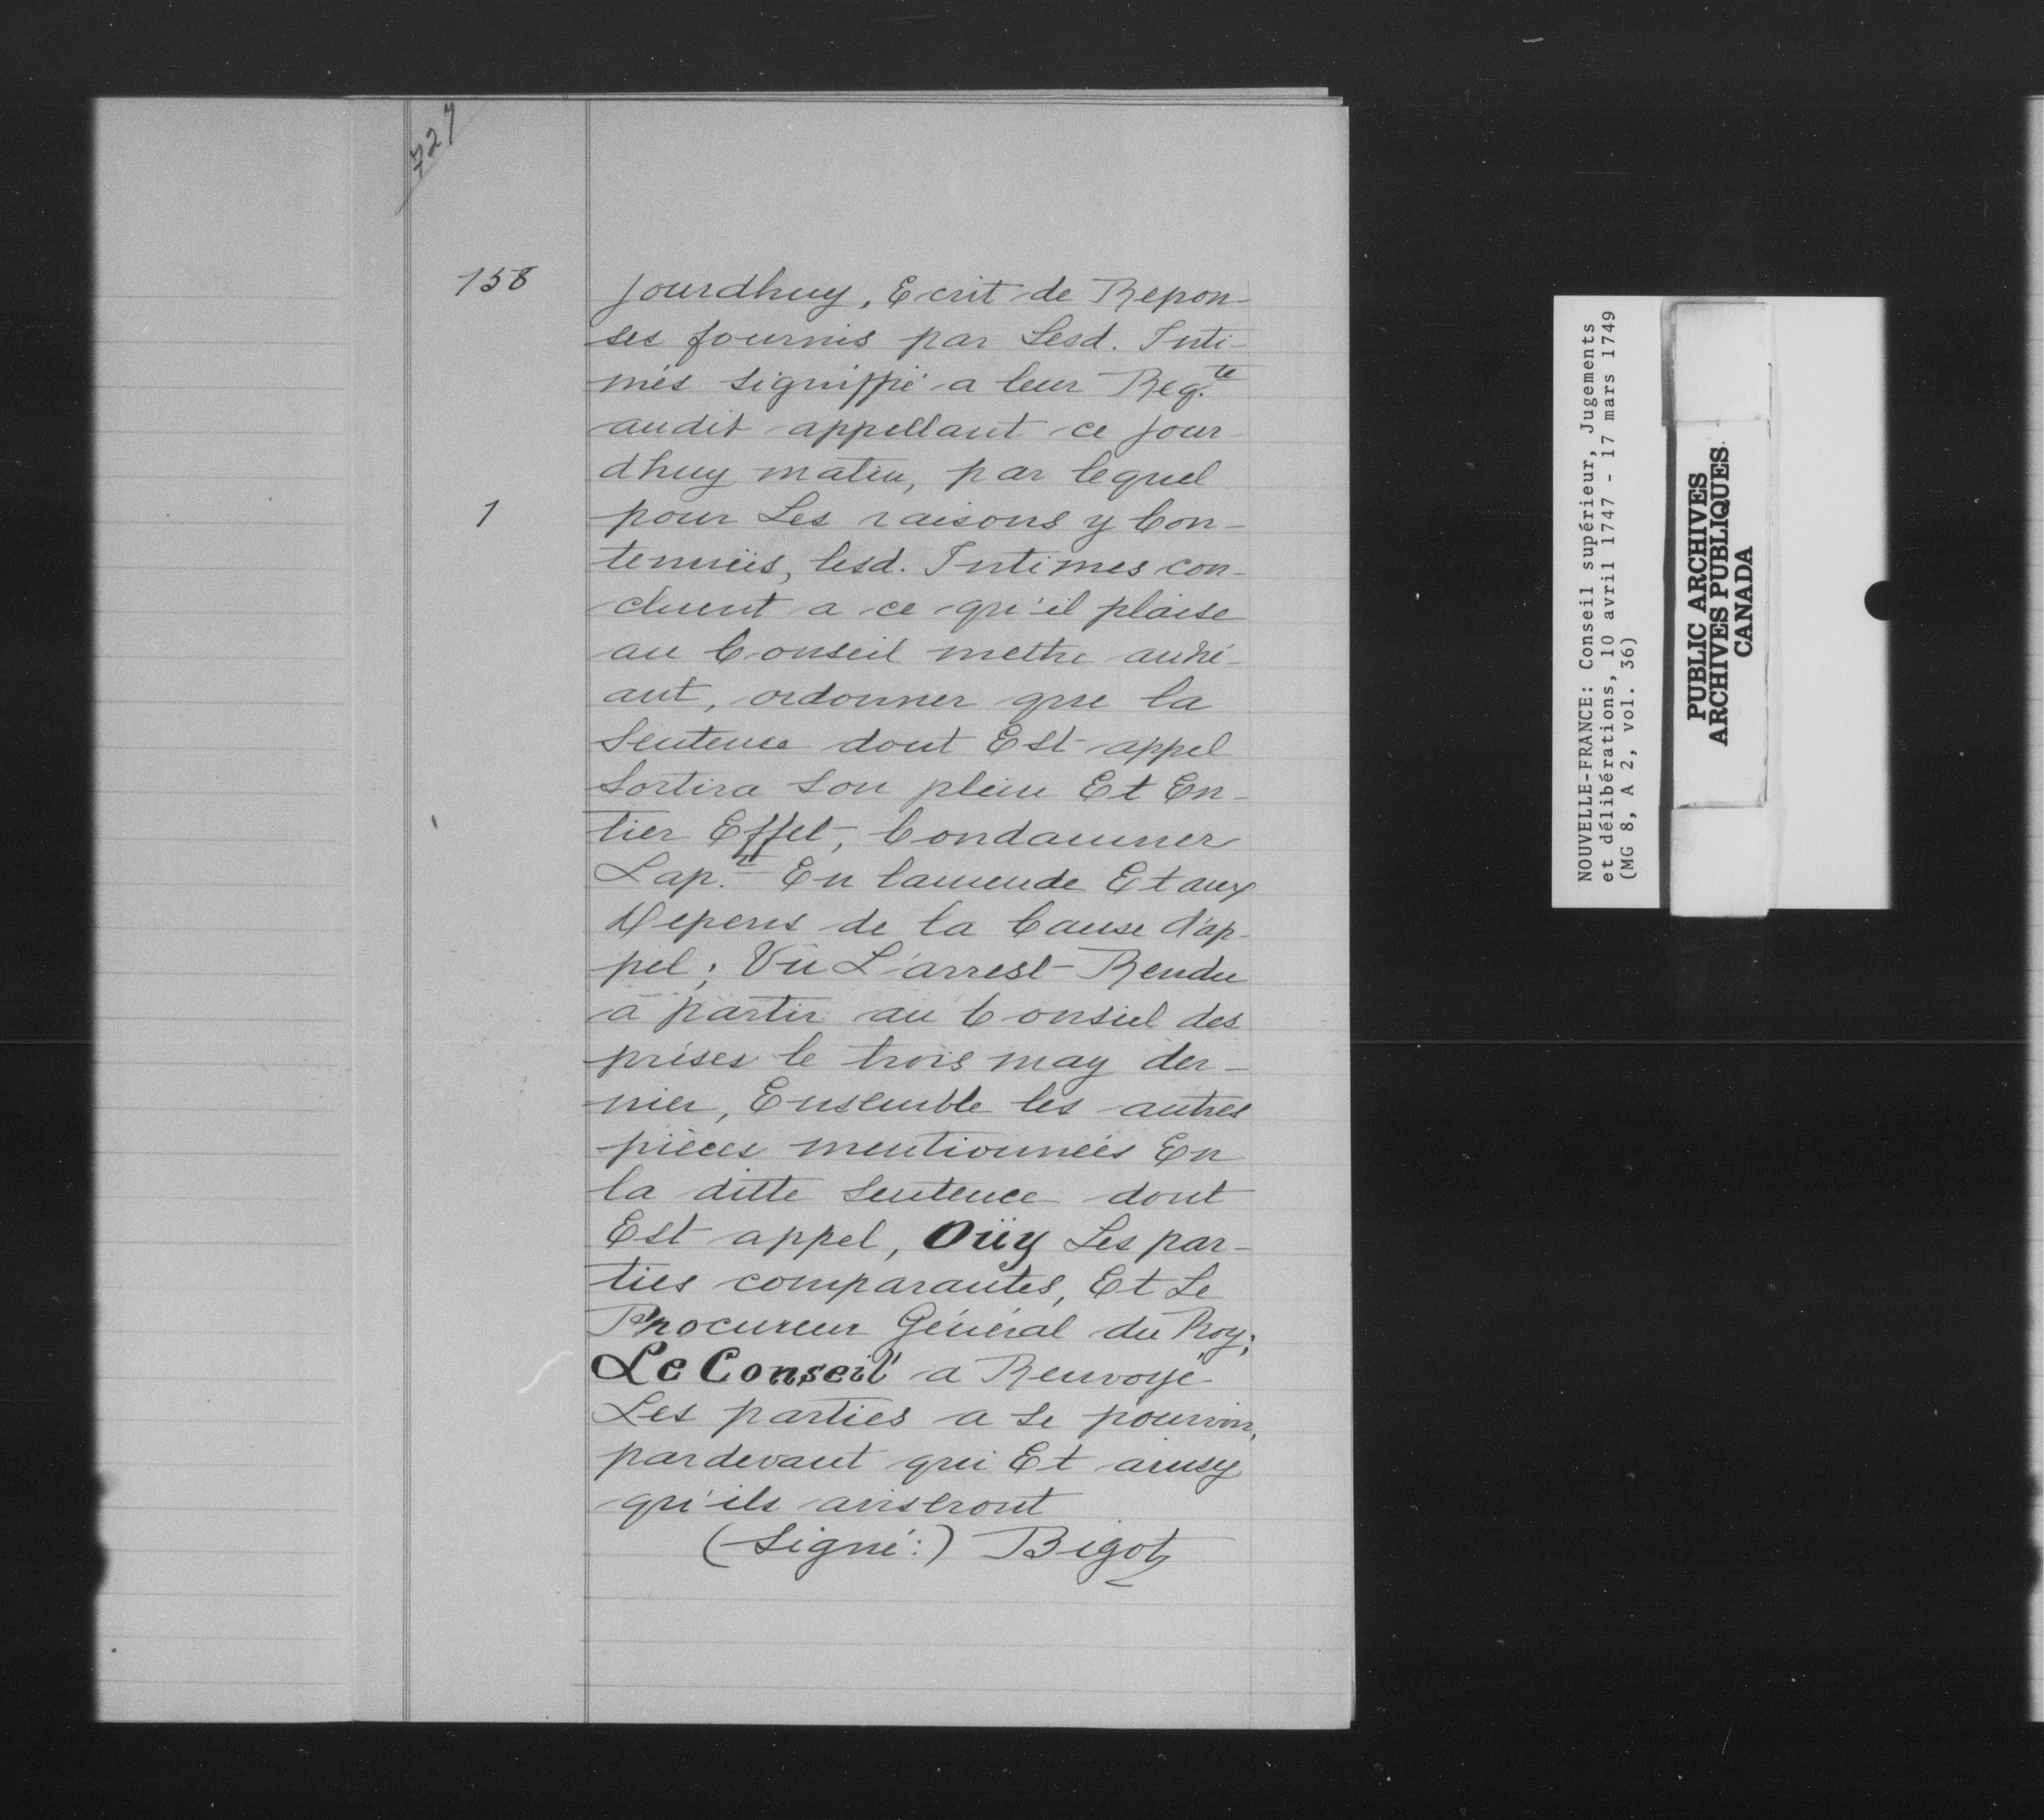 727
158
jourdhuy, Ecrit de Repon-
ses fournis par Lesd. Inti-
més signiffié a leur Reqte
audit appellant ce jour-
dhuy matin, par lequel
1
pour Les raisons y Con-
tenuës, lesd. Intimes con-
cluent a ce qu'il plaise
au Conseil mettre
ant, ordonner que la
Sentence dont Est appel
Sortira Son plein Et En-
tier Effet, Condamner
Lap.nt En lamende Et aux
Depens de la Cause d'ap-
pel; Vu L'arrest Rendu
a partir au Conseil des
prises le trois may der-
nier, Ensemble les autres
pièces mentionnées En
la ditte Sentence dont
Est appel, Oüy Les par-
ties comparantes, Et Le
Procureur Général du Roy;
Le Conseil a Renvoyé
Les parties a se pourvoir,
pardevant qui Et ainsy
qu'ils aviseront
(Signé:) Bigot
NOUVELLE-FRANCE: Conseil supérieur, Jugements
et délibérations, 10 avril 1747 - 17 mars 1749
(MG 8, A 2, vol. 36)
PUBLIC ARCHIVES
ARCHIVES PUBLIQUES
CANADA